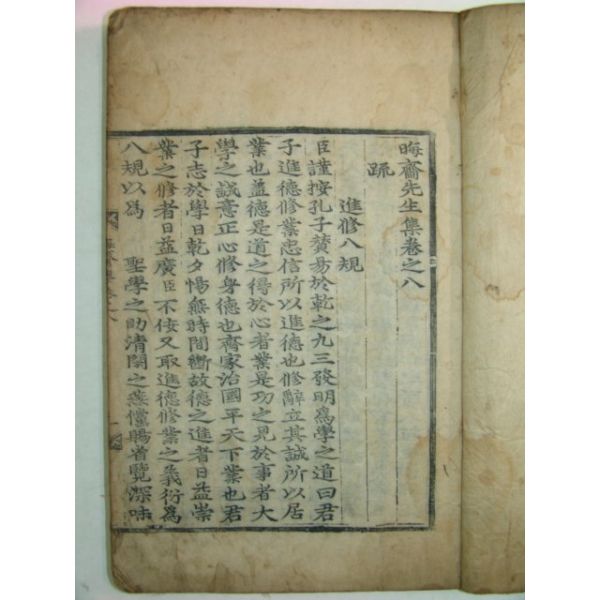 晦齋先生集卷之八
疏
進修八規
臣謹按孔子贊易於乾之九三發明爲學之道曰君
子進德修業忠信所以進德也修辭立其誠所以居
業也蓋德是道之得於心者業是功之見於事者大
學之誠意正心修身德也齊家治國平天下業也君
子志於學日乾夕惕無時間斷故德之進者日益崇
業之修者日益廣臣不佞又取進德修業之義衍爲
八規以爲 聖學之助清閑之燕儻賜省覽深味